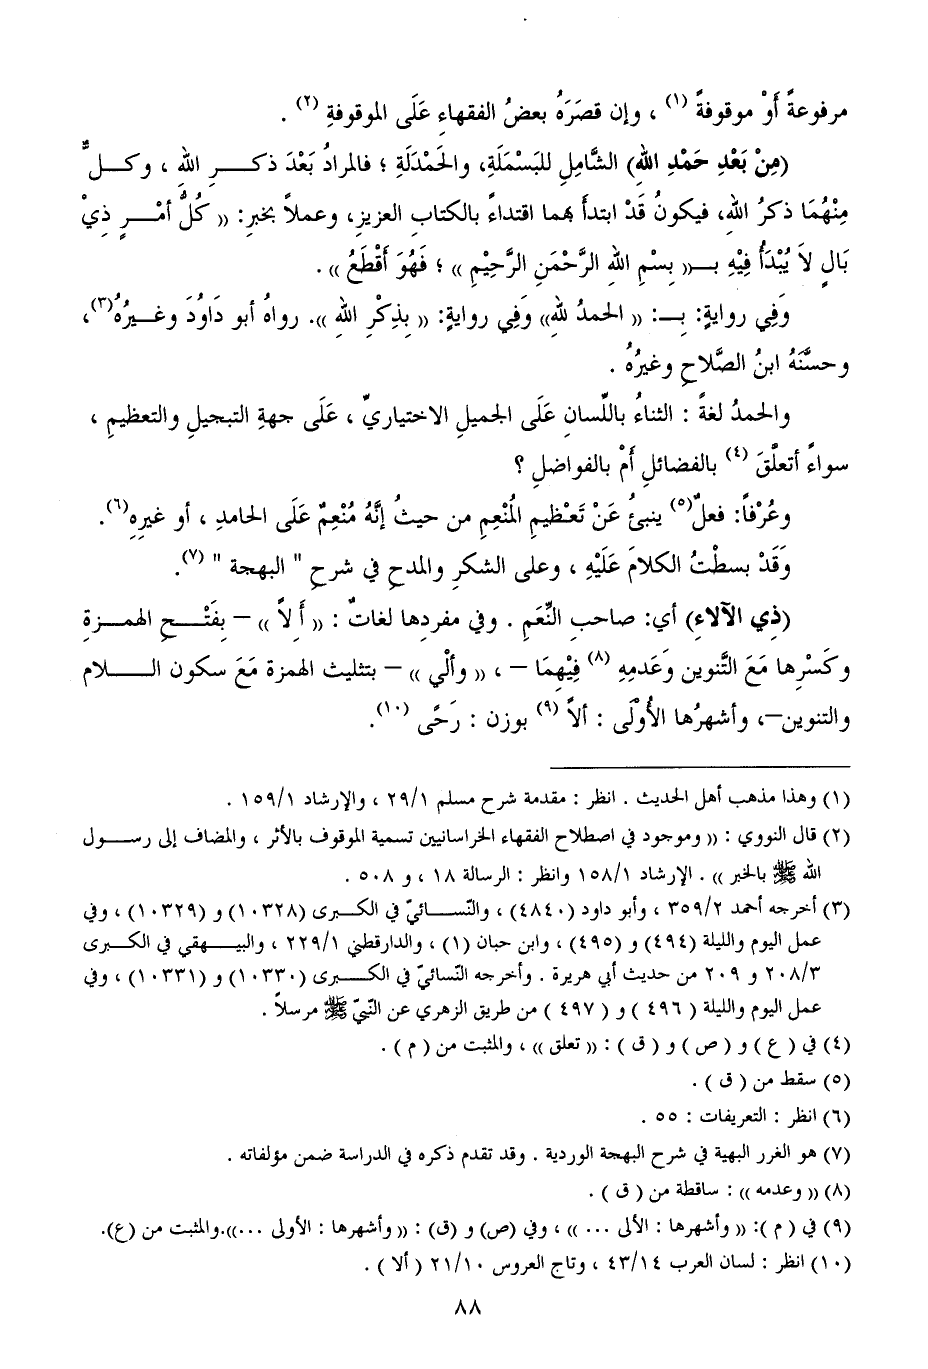 مرفوعةً أَوْ موقوفةً (١) ، وإن قصَرَهُ بعضُ الفقهاءِ عَلَى الموقوفةِ (٢) .
(مِنْ بَعْدِ حَمْدِ اللهِ) الشَّاملِ للبَسْمَلَةِ، والحَمْدَلَةِ ؛ فالمرادُ بَعْدَ ذكــرِ اللهِ ، وكــلٌّ
مِنْهُمَا ذكرُ اللهِ، فيكونُ قَدْ ابتدأَ بهما اقتداءً بالكتابِ العزيزِ، وعملاً بخبرِ: (( كُلُّ أمْــرٍ ذِيْ
بَالٍ لاَ يُبْدَأُ فِيْهِ بـ(( بِسْمِ اللهِ الرَّحْمَنِ الرَّحِيْمِ )) ؛ فَهُوَ أَقْطَعُ )) .
وَفِي روايةٍ: بـ: (( الحمدُ للهِ)) وَفِي روايةٍ: (( بِذِكْرِ اللهِ )). رواهُ أبو دَاوُدَ وغــيرُهُ(٣)،
وحسَّنَهُ ابنُ الصَّلاحِ وغيرُهُ .
والحمدُ لغةً : الثناءُ باللِّسانِ عَلَى الجميلِ الاختياريِّ ، عَلَى جهةِ التبجيلِ والتعظيمِ ،
سواءً أتعلَّقَ (٤) بالفضائلِ أَمْ بالفواضلِ ؟
وعُرْفاً: فعلٌ(٥) ينبئُ عَنْ تَعْظيمِ المُنْعِمِ من حيثُ إنَّهُ مُنْعِمٌ عَلَى الحامدِ ، أو غيرِهِ(٦).
وَقَدْ بسطْتُ الكلامَ عَلَيْهِ ، وعلى الشكرِ والمدحِ في شرحِ " البهجة " (٧).
(ذِي الآلاءِ) أي: صاحبِ النِّعَمِ . وفي مفردِها لغاتٌ : (( أَلاً )) – بِفَتْــحِ الهمــزةِ
وكَسْرِها مَعَ التَّنوينِ وَعَدمِهِ (٨) فِيْهِمَا – ، (( وأَلْي )) – بتثليث الهمزة مَعَ سكون الــلام
والتنوين–، وأشهرُها الأُوْلَى : ألاً (٩) بوزن : رَحًى (١٠).
(١) وهذا مذهب أهل الحديث . انظر : مقدمة شرح مسلم ٢٩/١ ، والإرشاد ١٥٩/١ .
(٢) قال النووي : (( وموجود في اصطلاح الفقهاء الخراسانيين تسمية الموقوف بالأثر ، والمضاف إلى رســول
الله ﷺ بالخبر )) . الإرشاد ١٥٨/١ وانظر : الرسالة ١٨ ، و ٥٠٨ .
(٣) أخرجه أحمد ٣٥٩/٢ ، وأبو داود (٤٨٤٠) ، والنّســائيّ في الكـبرى (١٠٣٢٨) و (١٠٣٢٩) ، وفي
عمل اليوم والليلة (٤٩٤) و (٤٩٥) ، وابن حبان (١) ، والدارقطني ٢٢٩/١ ، والبيــهقي في الكــبرى
٢٠٨/٣ و ٢٠٩ من حديث أبي هريرة . وأخرجه النّسائيّ في الكــبرى (١٠٣٣٠) و (١٠٣٣١) ، وفي
عمل اليوم والليلة ( ٤٩٦ ) و ( ٤٩٧ ) من طريق الزهري عن النّبيّ ﷺ مرسلاً .
(٤) في ( ع ) و ( ص ) و ( ق ) : (( تعلق )) ، والمثبت من ( م ) .
(٥) سقط من ( ق ) .
(٦) انظر : التعريفات : ٥٥ .
(٧) هو الغرر البهية في شرح البهجة الوردية . وقد تقدم ذكره في الدراسة ضمن مؤلفاته .
(٨) (( وعدمه )) : ساقطة من ( ق ) .
(٩) في ( م ): (( وأشهرها : الألى ... )) ، وفي (ص) و (ق) : (( وأشهرها : الأولى ...)).والمثبت من (ع).
(١٠) انظر : لسان العرب ٤٣/١٤ ، وتاج العروس ٢١/١٠ ( ألا ) .
٨٨